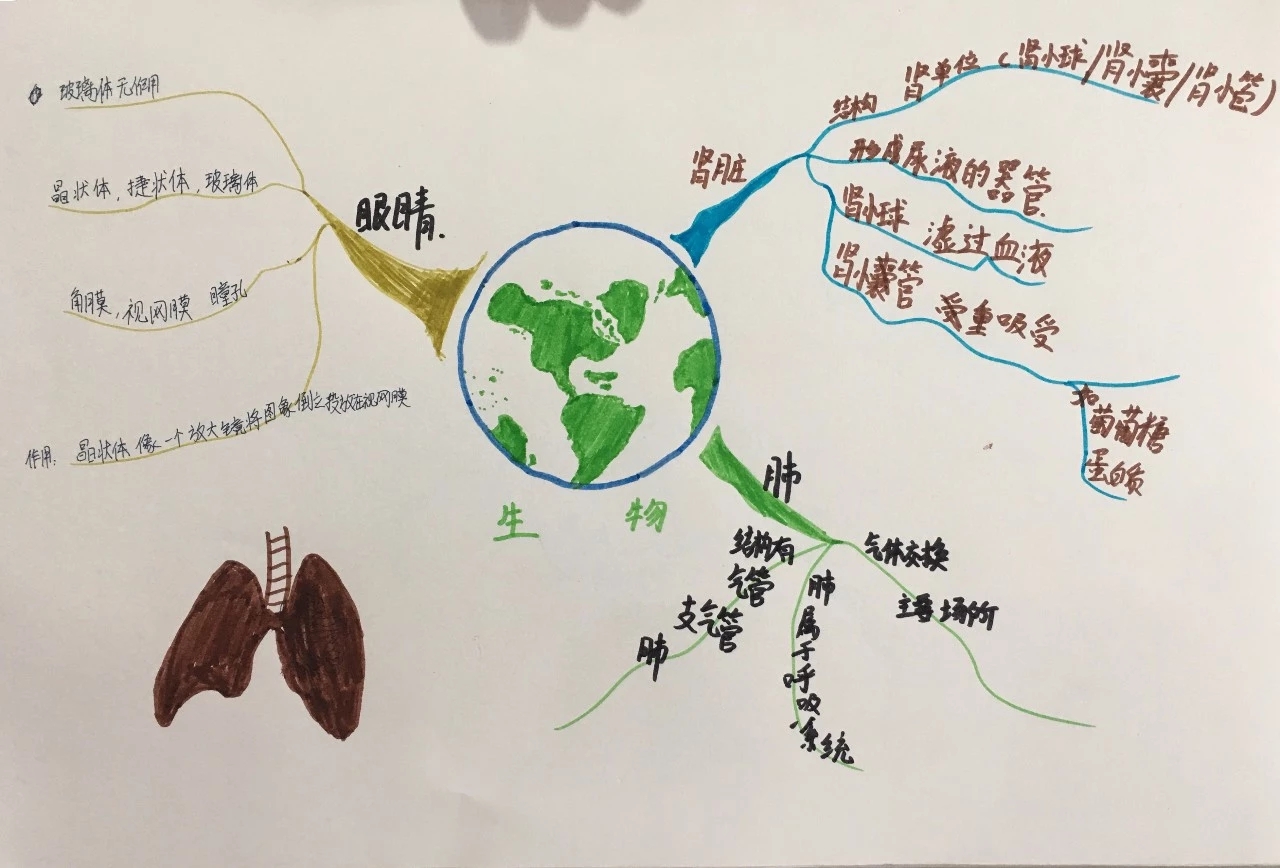 玻璃体无作用
晶状体，捷状体，玻璃体
角膜，视网膜 瞳孔
作用：晶状体像一个放大镜将图象倒立投放在视网膜
眼睛.
肾脏
结构
肾单位（肾小球/肾小囊/肾小管）
形成尿液的器管.
肾小球 滤过血液
肾小囊管 受重吸受
和
葡萄糖
蛋白质
生物
肺
结构有
气管
支气管
肺
肺属于呼吸系统
气体交换
主要场所